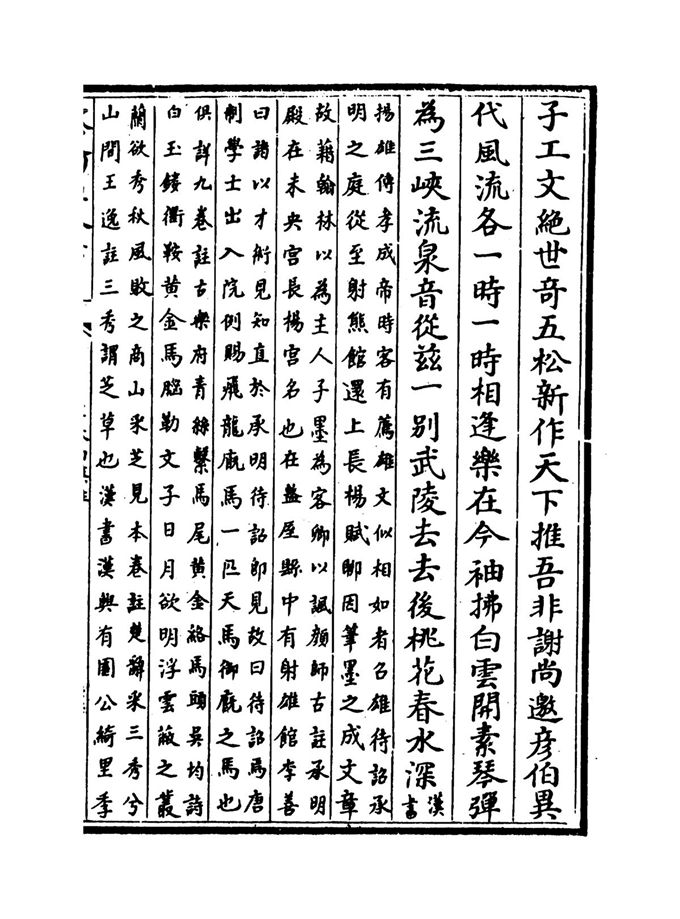 子工文絶世竒五松新作天下推吾非謝尚邀彦伯異
代風流各一時一時相逢樂在今袖拂白雲開素琴彈
為三峽流泉音從兹一别武陵去去後桃花春水深漢書
揚雄傳孝成帝時客有薦雄文似相如者召雄待詔承
明之庭從至射熊館還上長楊賦聊因筆墨之成文章
故藉翰林以為主人子墨為客卿以諷顔師古註承明
殿在未央宫長楊宫名也在盩厔縣中有射雄館李善
曰諸以才術見知直於承明待詔即見故曰待詔焉唐
制學士出入院例賜飛龍廐馬一匹天馬御廐之馬也
俱詳九卷註古樂府青絲繫馬尾黄金絡馬頭吳均詩
白玉鏤衢鞍黄金馬腦勒文子日月欲明浮雲蔽之叢
蘭欲秀秋風敗之商山采芝見本卷註楚辭采三秀兮
山間王逸註三秀謂芝草也漢書漢興有園公綺里季